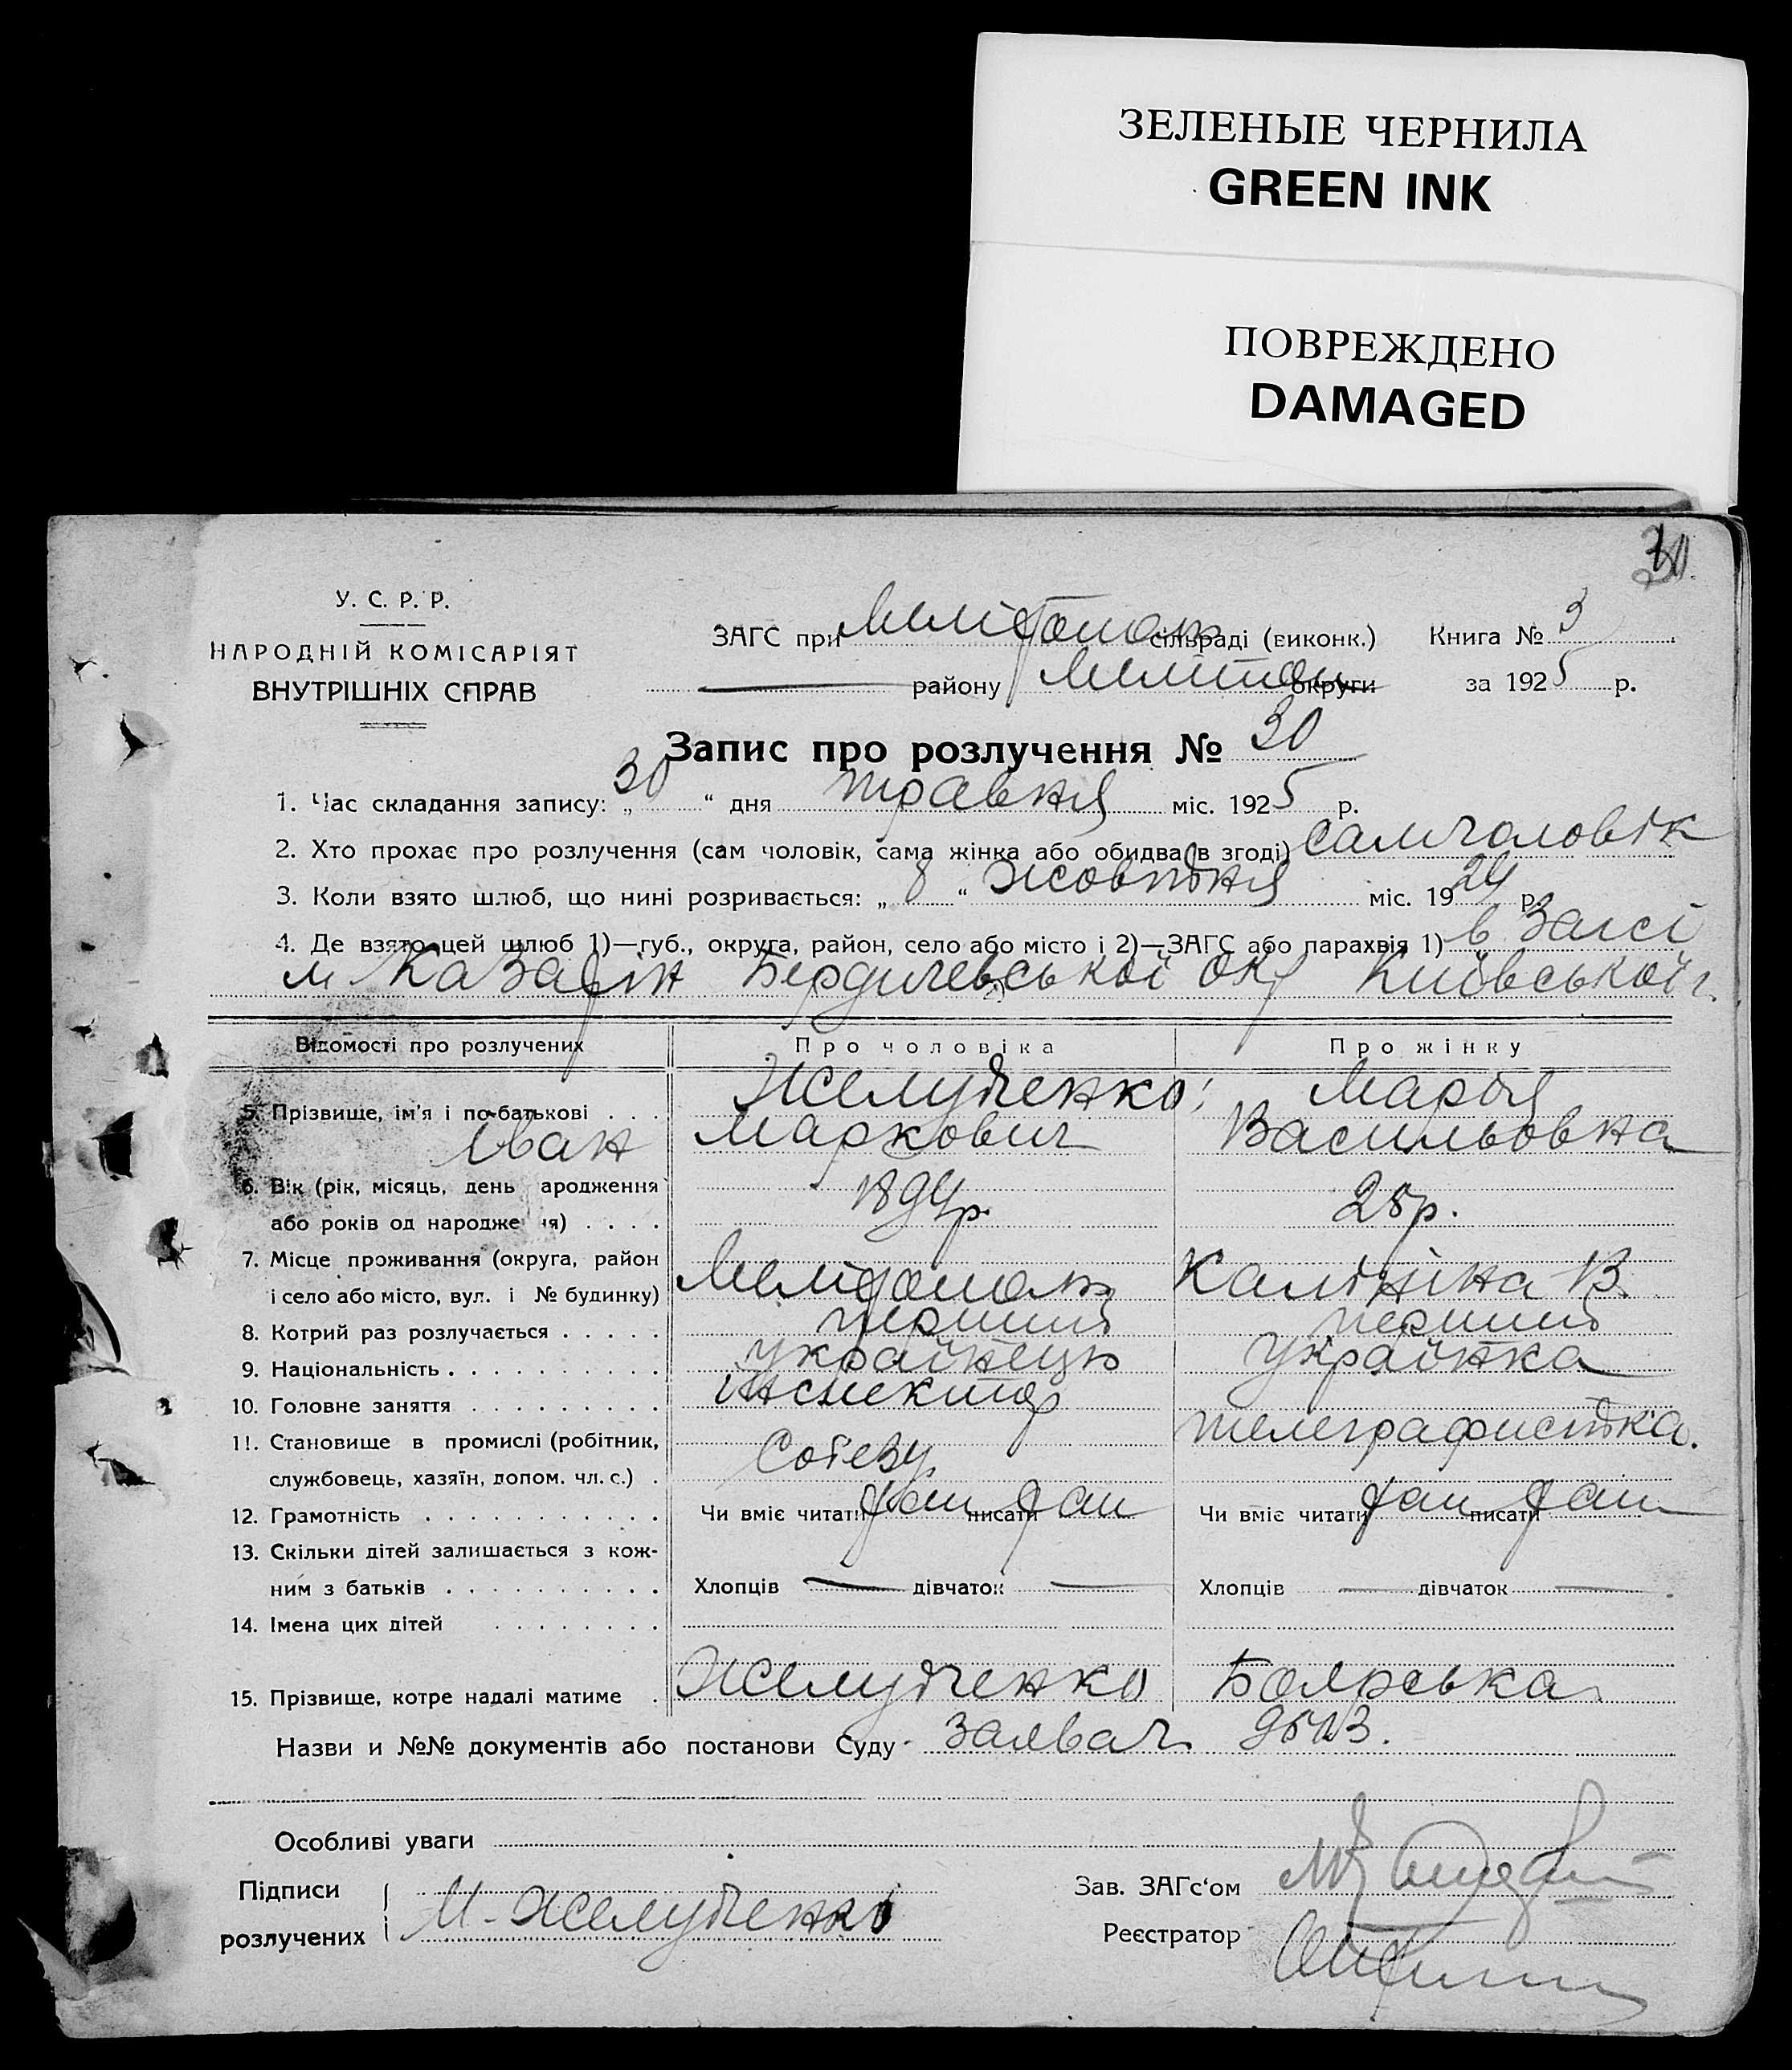 ЗЕЛЕНЫЕ ЧЕРНИЛА
GREEN INK
ПОВРЕЖДЕНО
DAMAGED
30.
У. С. Р. Р.
НАРОДНІЙ КОМІСАРІЯТ
ВНУТРІШНІХ СПРАВ
ЗАГС при Мелітополь сільраді (виконк.) Книга № 3
району Мелітоп округи за 1925 р.
Запис про розлучення № 30
1. Час складання запису: „30“ дня травня міс. 1925 р.
2. Хто прохає про розлучення (сам чоловік, сама жінка або обидва в згоді) сам чоловік
3. Коли взято шлюб, що нині розривається: „8“ жовтня міс. 1924 р.
4. Де взято цей шлюб 1)—губ., округа, район, село або місто і 2)—ЗАГС або парахвія 1) в Загсі
м Казатін Бердичевської окр Київської г.
Відомості про розлучених Про чоловіка Про жінку
5. Прізвище, ім'я і по-батькові . . . Желудченко Марія
Іван Маркович Васильовна
6. Вік (рік, місяць, день ародження
або років од народже ня) . . . . 1894р. 25р.
7. Місце проживання (округа, район
і село або місто, вул. і № будинку) Мелітополь Калініна В.
8. Котрий раз розлучається . . . . . перший перший
9. Національність . . . . . . . . . . українець українка
10. Головне заняття . . . . . . . . . інспектор
11. Становище в промислі (робітник, телеграфистка.
службовець, хазяїн, допом. чл. с.) .
12. Грамотність . . . . . . . . . . . Чи вміє читати так писати так Чи вміє читати так писати так
13. Скільки дітей залишається з кож-
ним з батьків . . . . . . . . . . Хлопців — дівчаток — Хлопців — дівчаток —
14. Імена цих дітей . . . . . . . .
15. Прізвище, котре надалі матиме . Желудченко Боярська
Назви и №№ документів або постанови Суду
Особливі уваги
Підписи
розлучених И. Желудченко
Зав. ЗАГс'ом
Реєстратор